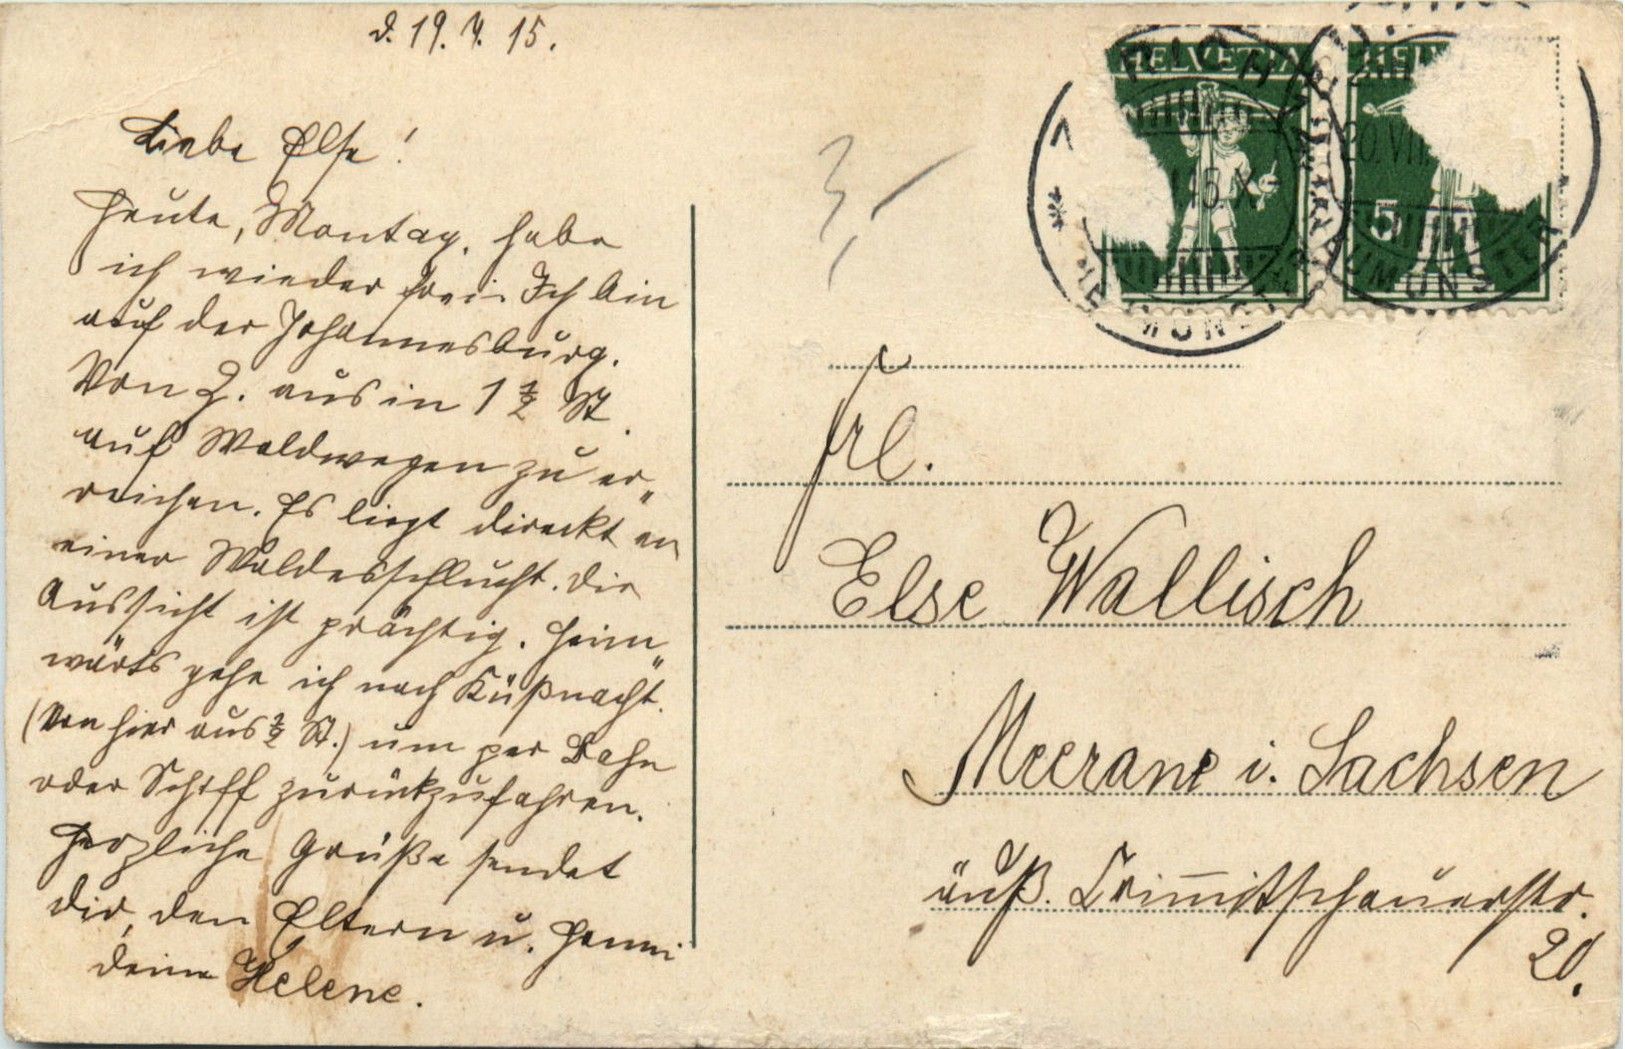 d. 19. 7. 15.
Liebe Else!
Heute, Montag, habe
ich wieder frei. Ich bin
auf der Johannesburg.
Von Z. aus in 1 1/2 St.
auf Waldwegen zu er„
reichen. Es liegt direckt an
einer Waldesschlucht. Die
Aussicht ist prächtig. Heim„
wärts gehe ich nach Küßnacht.
(Von hier aus 1/2 St.) um per Bahn
oder Schiff zurückzufahren.
Herzliche Grüße sendet
dir, den Eltern u. Hanni
deine Helene.
HELVETIA
5
20.VII
FRAUMÜNSTER
3,-
Frl.
Else Wallisch
Meerane i. Sachsen
äuß. Crimmitschauerstr.
20.